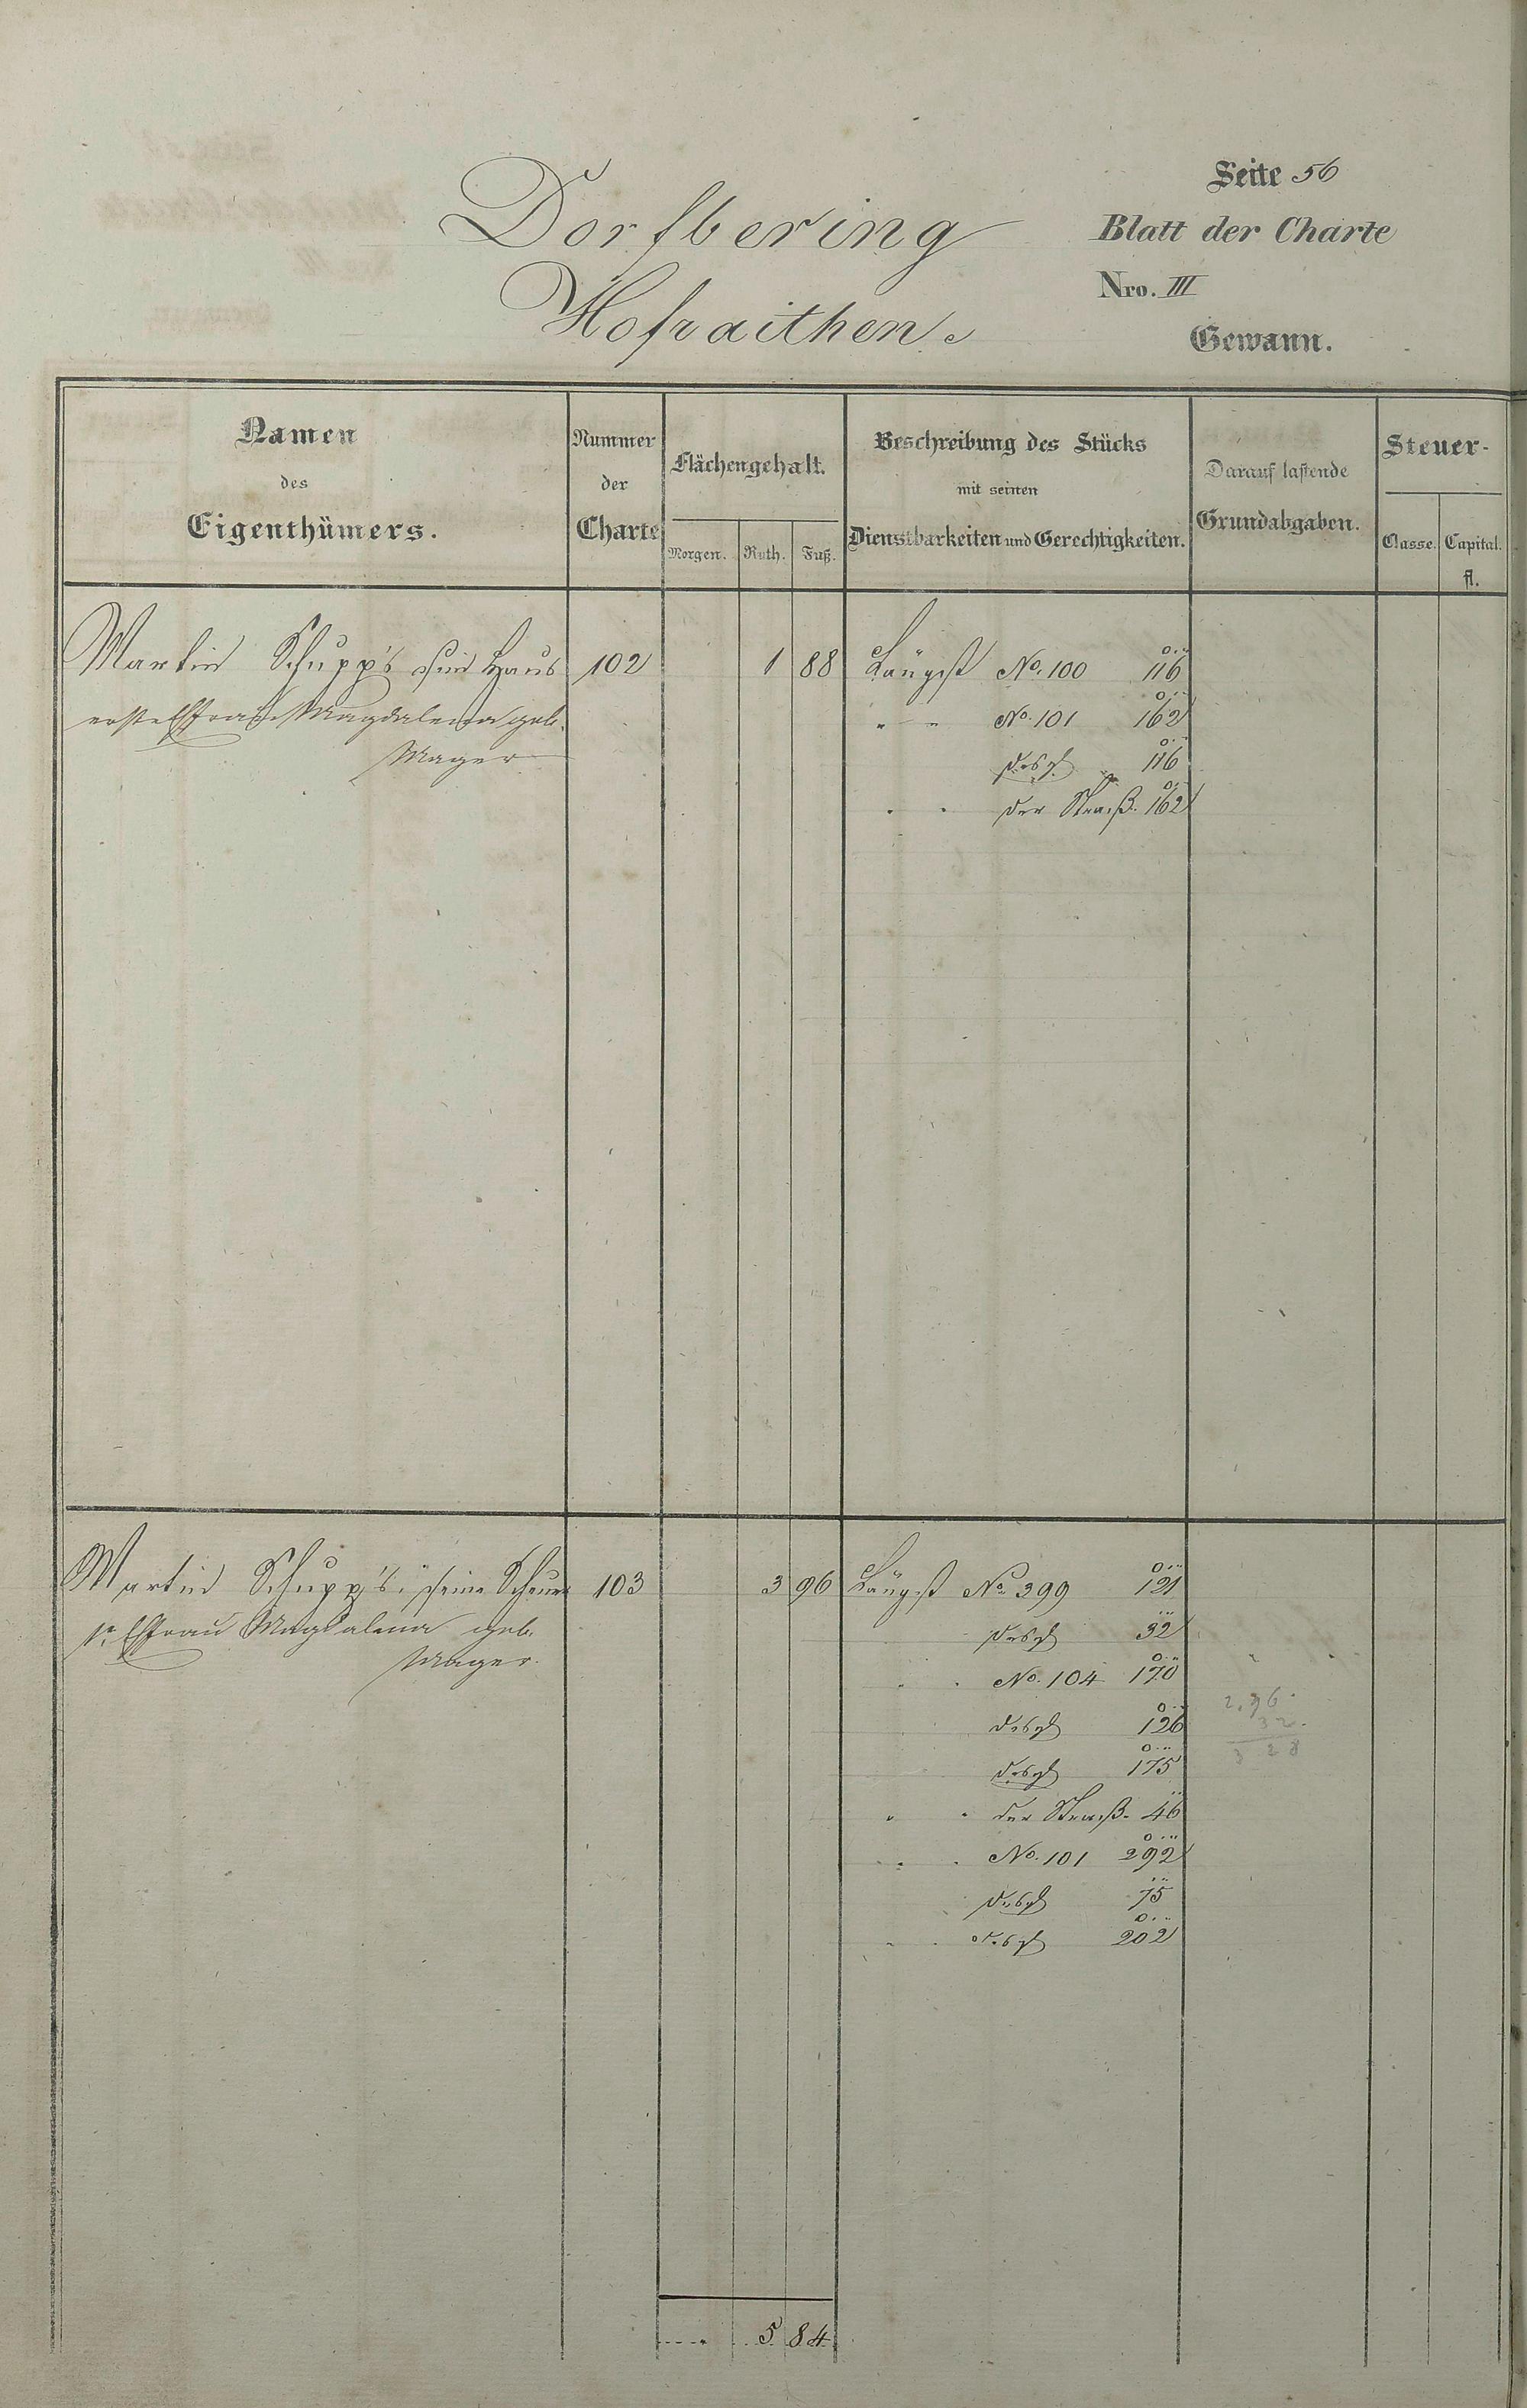 Seite 56
Dorfbering
Blatt der Charte
Nro. III
Hofraithen.
Gewann.
Namen des Eigenthümers.
Nummer der Charte
Flächengehalt.
Morgen. Ruth. Fuß.
Beschreibung des Stücks mit seinen Dienstbarkeiten und Gerechtigkeiten.
Darauf lastende Grundabgaben.
Steuer-
Classe. Capital. fl.
Martin Schupp's sein Haus 102 1 88 Längst No. 100 116
erste Ehefrau Magdalena geb. " " No. 101 162
Mager desgl 116
" " der Straß. 162
Martin Schupp's. seine Scheuer 103 3 96 Längst No. 399 121
1te Ehfrau Magdalena geb. desgl 32
Mager. " " No. 104 170
desgl 126
desgl 175
" " der Straß. 46
" " No. 101 292
desgl 75
" " desgl 202
2,96.
32.
3 28
5 84